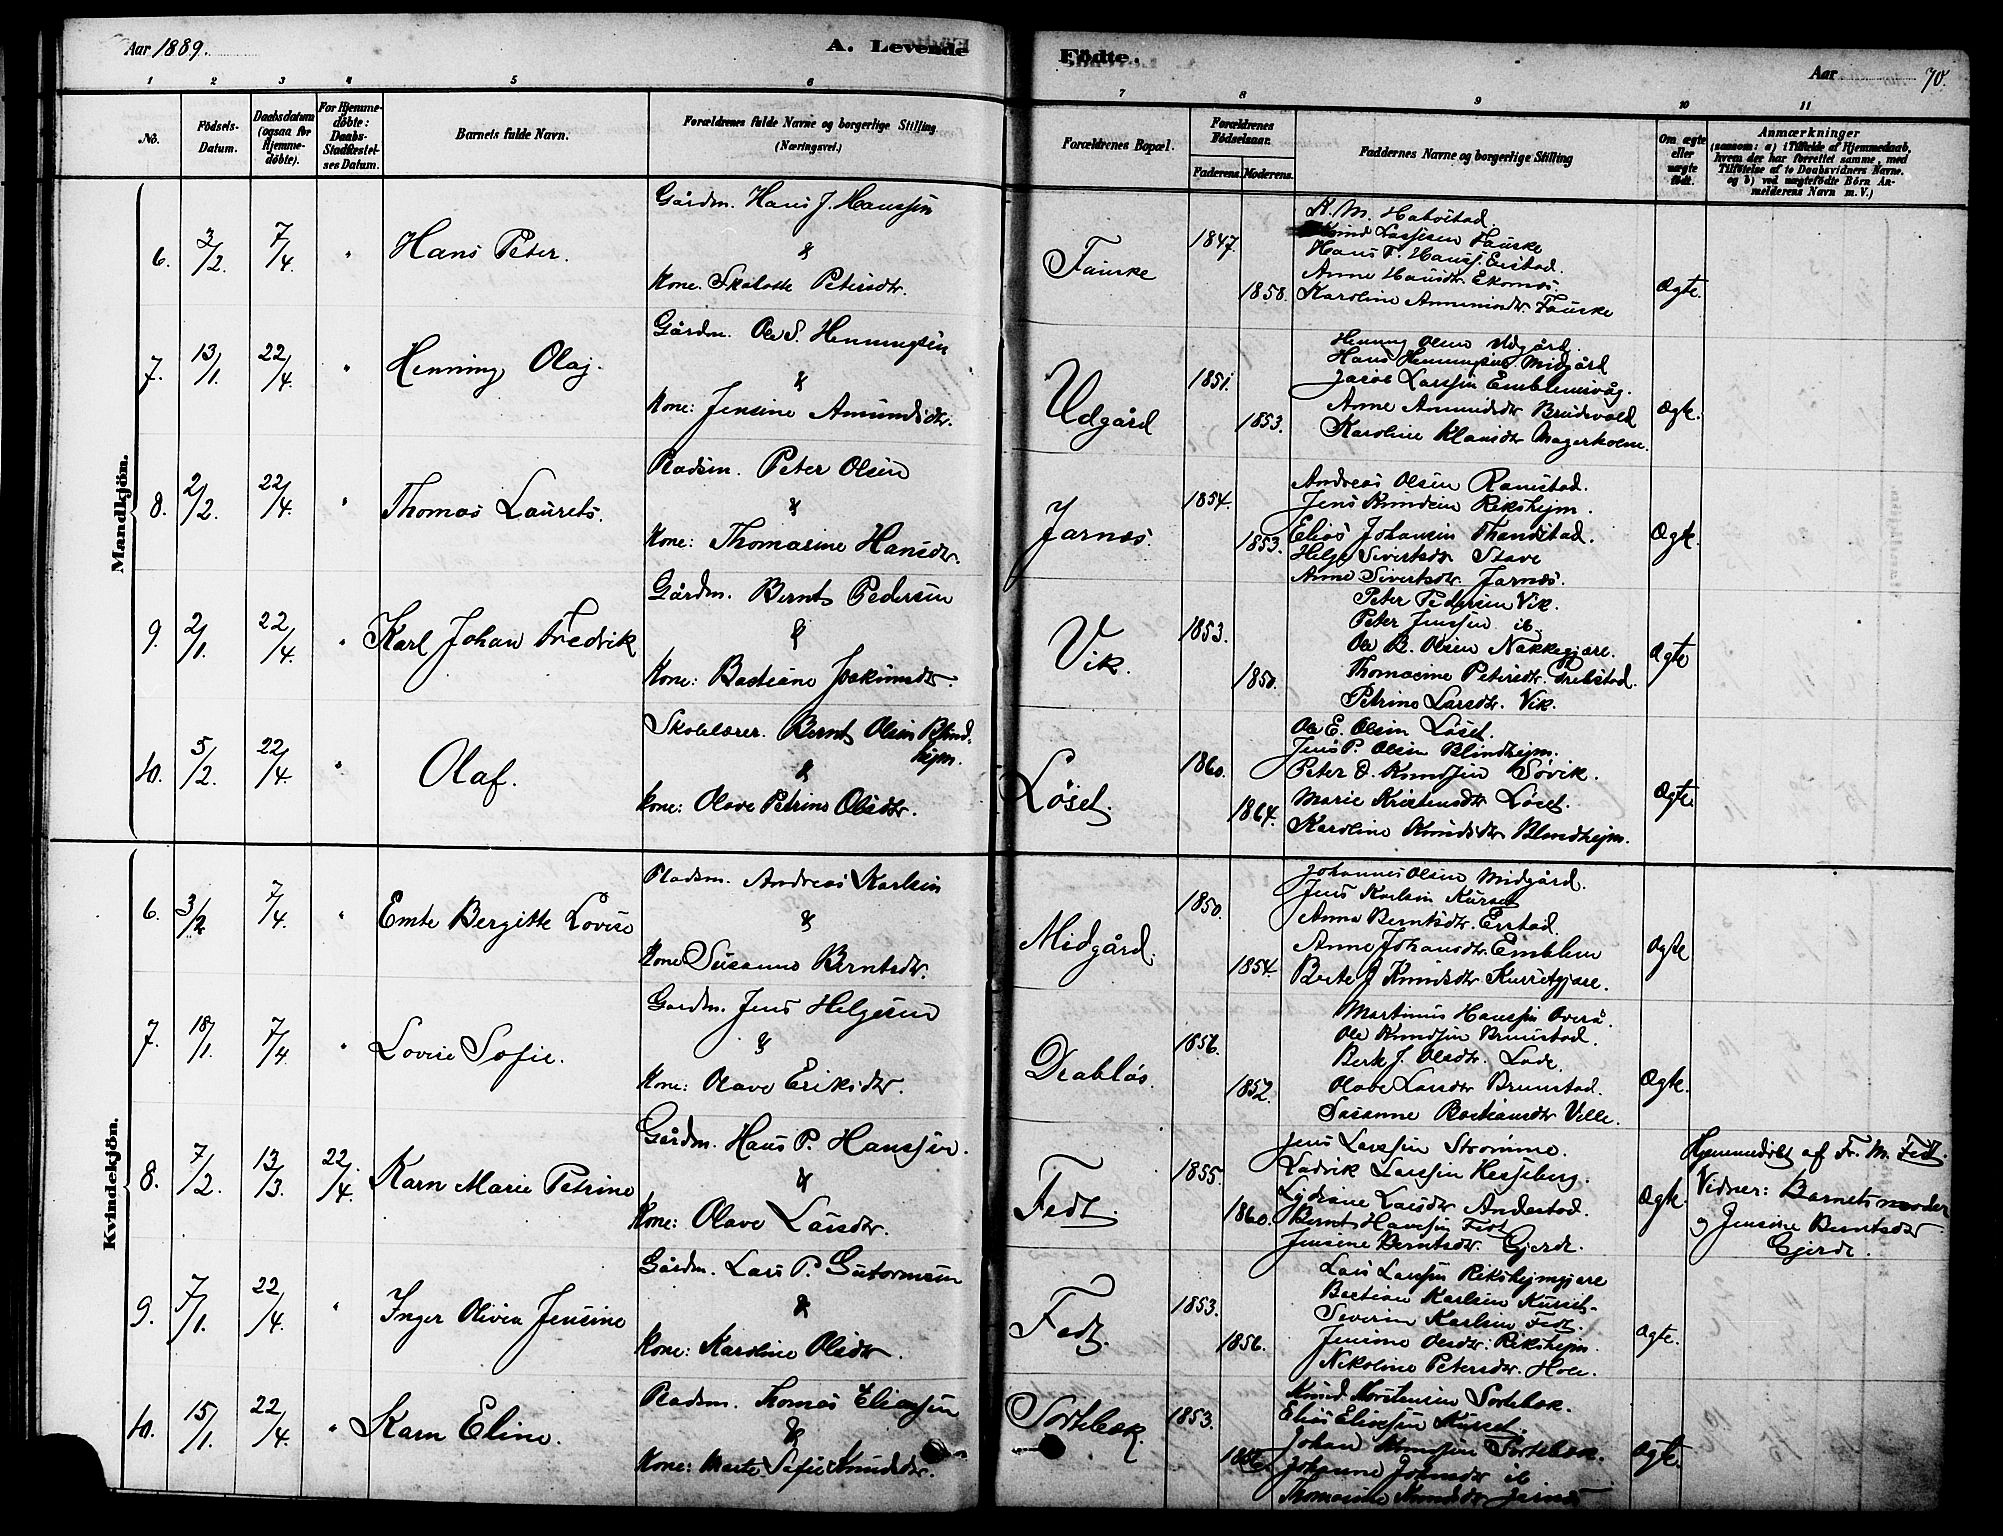 Aar 1889.
A. Levende
Födte.
Aar
70.
1 2 3 4 5 6 7 8 9 10 11
No.
Födsels-
Datum.
Daabsdatum
(ogsaa for
Hjemme-
döbte).
For Hjemme-
døbte:
Daabs-
Stadfæstel-
ses Datum.
Barnets fulde Navn.
Forældrenes fulde Navne og borgerlige Stilling
(Næringsvei.)
Forældrenes Bopæl.
Forældrenes
Födselsaar.
Faderens. Moderens.
Faddernes Navne og borgerlige Stilling
Om ægte
eller
uægte
födt.
Anmærkninger
(saasom: a) i Tilfælde af Hjemmedaab,
hvem der har forrettet samme, med
Tilföielse af to Daabsvidners Navne.
og b) ved uægtefödte Börn An-
melderens Navn m. V.)
Mandkjön.
6. 3/2. 7/4. " Hans Peter.
Gårdm. Hans J. Hanssen
&
Kone. Petersdtr.
Fauske
1847.
1850.
K. M. Hatlestad
Knud Larssen Fauske
Hans P. Hanss. Erstad.
Anne Hansdtr. Ekornæs.
Karoline Fauske
Ægte.
7. 13/1. 22/4. " Henning Olaj.
Gårdm. Ole S. Henningsen
&
Kone: Jensine Amundsdtr.
Udgård
1851.
1853.
Henning Olsen Udgård.
Hans Henningsen Midgård
Jacob Larssen Emblemsvåg.
Anne Amundsdtr Brudevold
Karoline Klausdtr Magerholm.
Ægte.
8. 2/2. 22/4. " Thomas Laurets.
Pladsm. Peter Olsen
&
Kone: Thomasine Hansdtr.
Jarnæs.
1854.
1853.
Andreas Olsen Ramstad.
Jens Knudsen Riksheim.
Elias Johansen Thandstad.
Helge Sivertsdtr Stave
Anne Sivertsdtr. Jarnæs.
Ægte.
9. 2/1. 22/4. " Karl Johan Fredrik
Gårdm. Bernt Pedersen
&
Kone: Bastiane Joakimsdtr.
Vik.
1853.
1850.
Peter Pedersen Vik.
Peter Jenssen ib.
Ole B. Olsen Nakkegjære.
Thomasine Petersdtr.
Petrine Larsdtr. Vik.
Ægte
10. 5/2. 22/4. " Olaf.
Skolelærer. Bernt Olsen Blind-
hejm.
&
Kone: Olave Petrine Olsdtr.
Løset.
1860.
1864.
Ole E. Olsen Løset.
Jens P. Olsen Blindhejm.
Peter O. Knudsen Søvik.
Marie Kristensdtr Løset.
Karoline Knudsdtr Blindhejm.
Ægte.
Kvindekjön.
6. 3/2. 7/4. " Emte Bergitte Lovise
Pladsm. Andreas Karlsen
&
Kone Susanne Berntsdtr.
Midgård.
1850.
1854.
Johannes Olsen Midgård.
Jens Karlsen Kurset
Anna Berntsdtr. Erstad.
Anne Johansdtr. Emblem
Berte J Knudsdtr Kursetgjære.
Ægte
7. 18/1. 7/4 " Lovise Sofie.
Gardm. Jens Helgesen
&
Kone: Olave Eriksdtr.
Drabløs.
1856.
1852.
Martinus Hanssen Overå.
Ole Knudsen Brunstad.
Berte J. Olsdtr. Lade.
Olave Larsdtr Brunstad.
Susanne Bastiansdtr Velle.
Ægte.
8. 7/2. 13/3. 22/4. Karn Marie Petrine
Gårdm. Hans P. Hanssen.
&
Kone: Olave Larsdtr.
Fedt.
1855.
1860.
Jens Larssen Strømme.
Ludvik Larssen Hesseberg.
Lydiane Larsdtr Andestad.
Bernt Hanssen Fedt
Jensine Berntsdtr. Gjerde.
Ægte.
Hjemmedøbt af Fr. M. Fedt.
Vidner: Barnets moder
og Jensine Berntsdtr
Gjerde.
9. 7/1. 22/4. " Inger Olivia Jensine
Gårdm. Lars P. Gutormsen
&
Kone: Karoline Olsdtr.
Fedt.
1853.
1856.
Lars Larssen Rikshejmgjære
Bastian Karlsen Kurset.
Severin Karlsen Fedt.
Jensine Olsdtr. Rikshejm.
Nikoline Petersdtr. Hole.
Ægte.
10. 15/1. 22/4. " Karn Eline.
Pladsm. Thomas Eliassen
&
Kone: Marte Sofie Knudsdtr.
Sortebæk.
1853.
Knud Torstensen Sortebæk.
Elias Eliassen Kurset.
Johan Knudsen Sortebæk.
Johanne Johnsdtr ib
Thomasine Knudsdtr Jarnæs
Ægte.